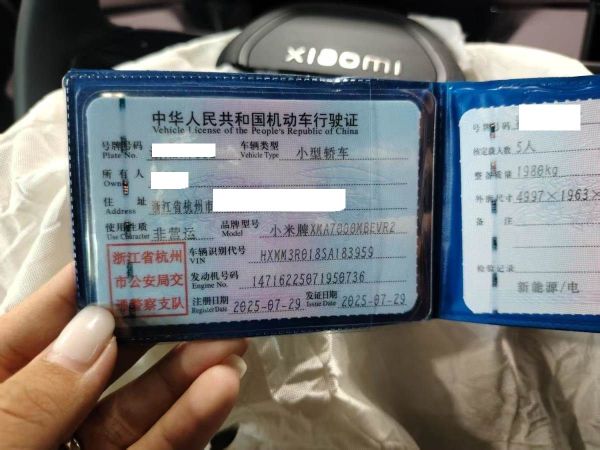 xiaomi
中华人民共和国机动车行驶证
Vehicle License of the People's Republic of China
号牌号码
Plate No.
车辆类型
Vehicle Type
小型轿车
所有人
Owner
住址
Address
浙江省杭州市
使用性质
Use Character
非营运
品牌型号
Model
小米牌XMA7000MBEVR2
车辆识别代号
VIN
HXMM3R018SA183959
发动机号码
Engine No.
14716225071950736
注册日期
Register Date
2025-07-29
发证日期
Issue Date
2025-07-29
浙江省杭州
市公安局交
通警察支队
号牌号码
核定载人数
5人
整备质量
1980kg
外廓尺寸
4997×1963×
备注
检验记录
新能源/电